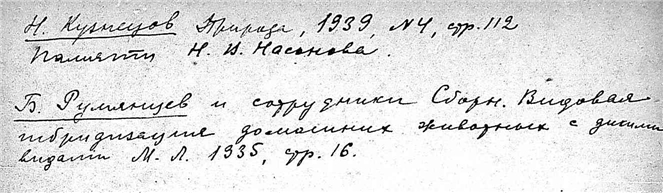 Н. Кузнецов Природа, 1939, N4, стр. 112
Памяти Н. В. Насонова.
Б. Румянцев и сотрудники Сборн. Видовая
гибридизация домашних животных с дикими
видами М. Л. 1935, стр. 16.